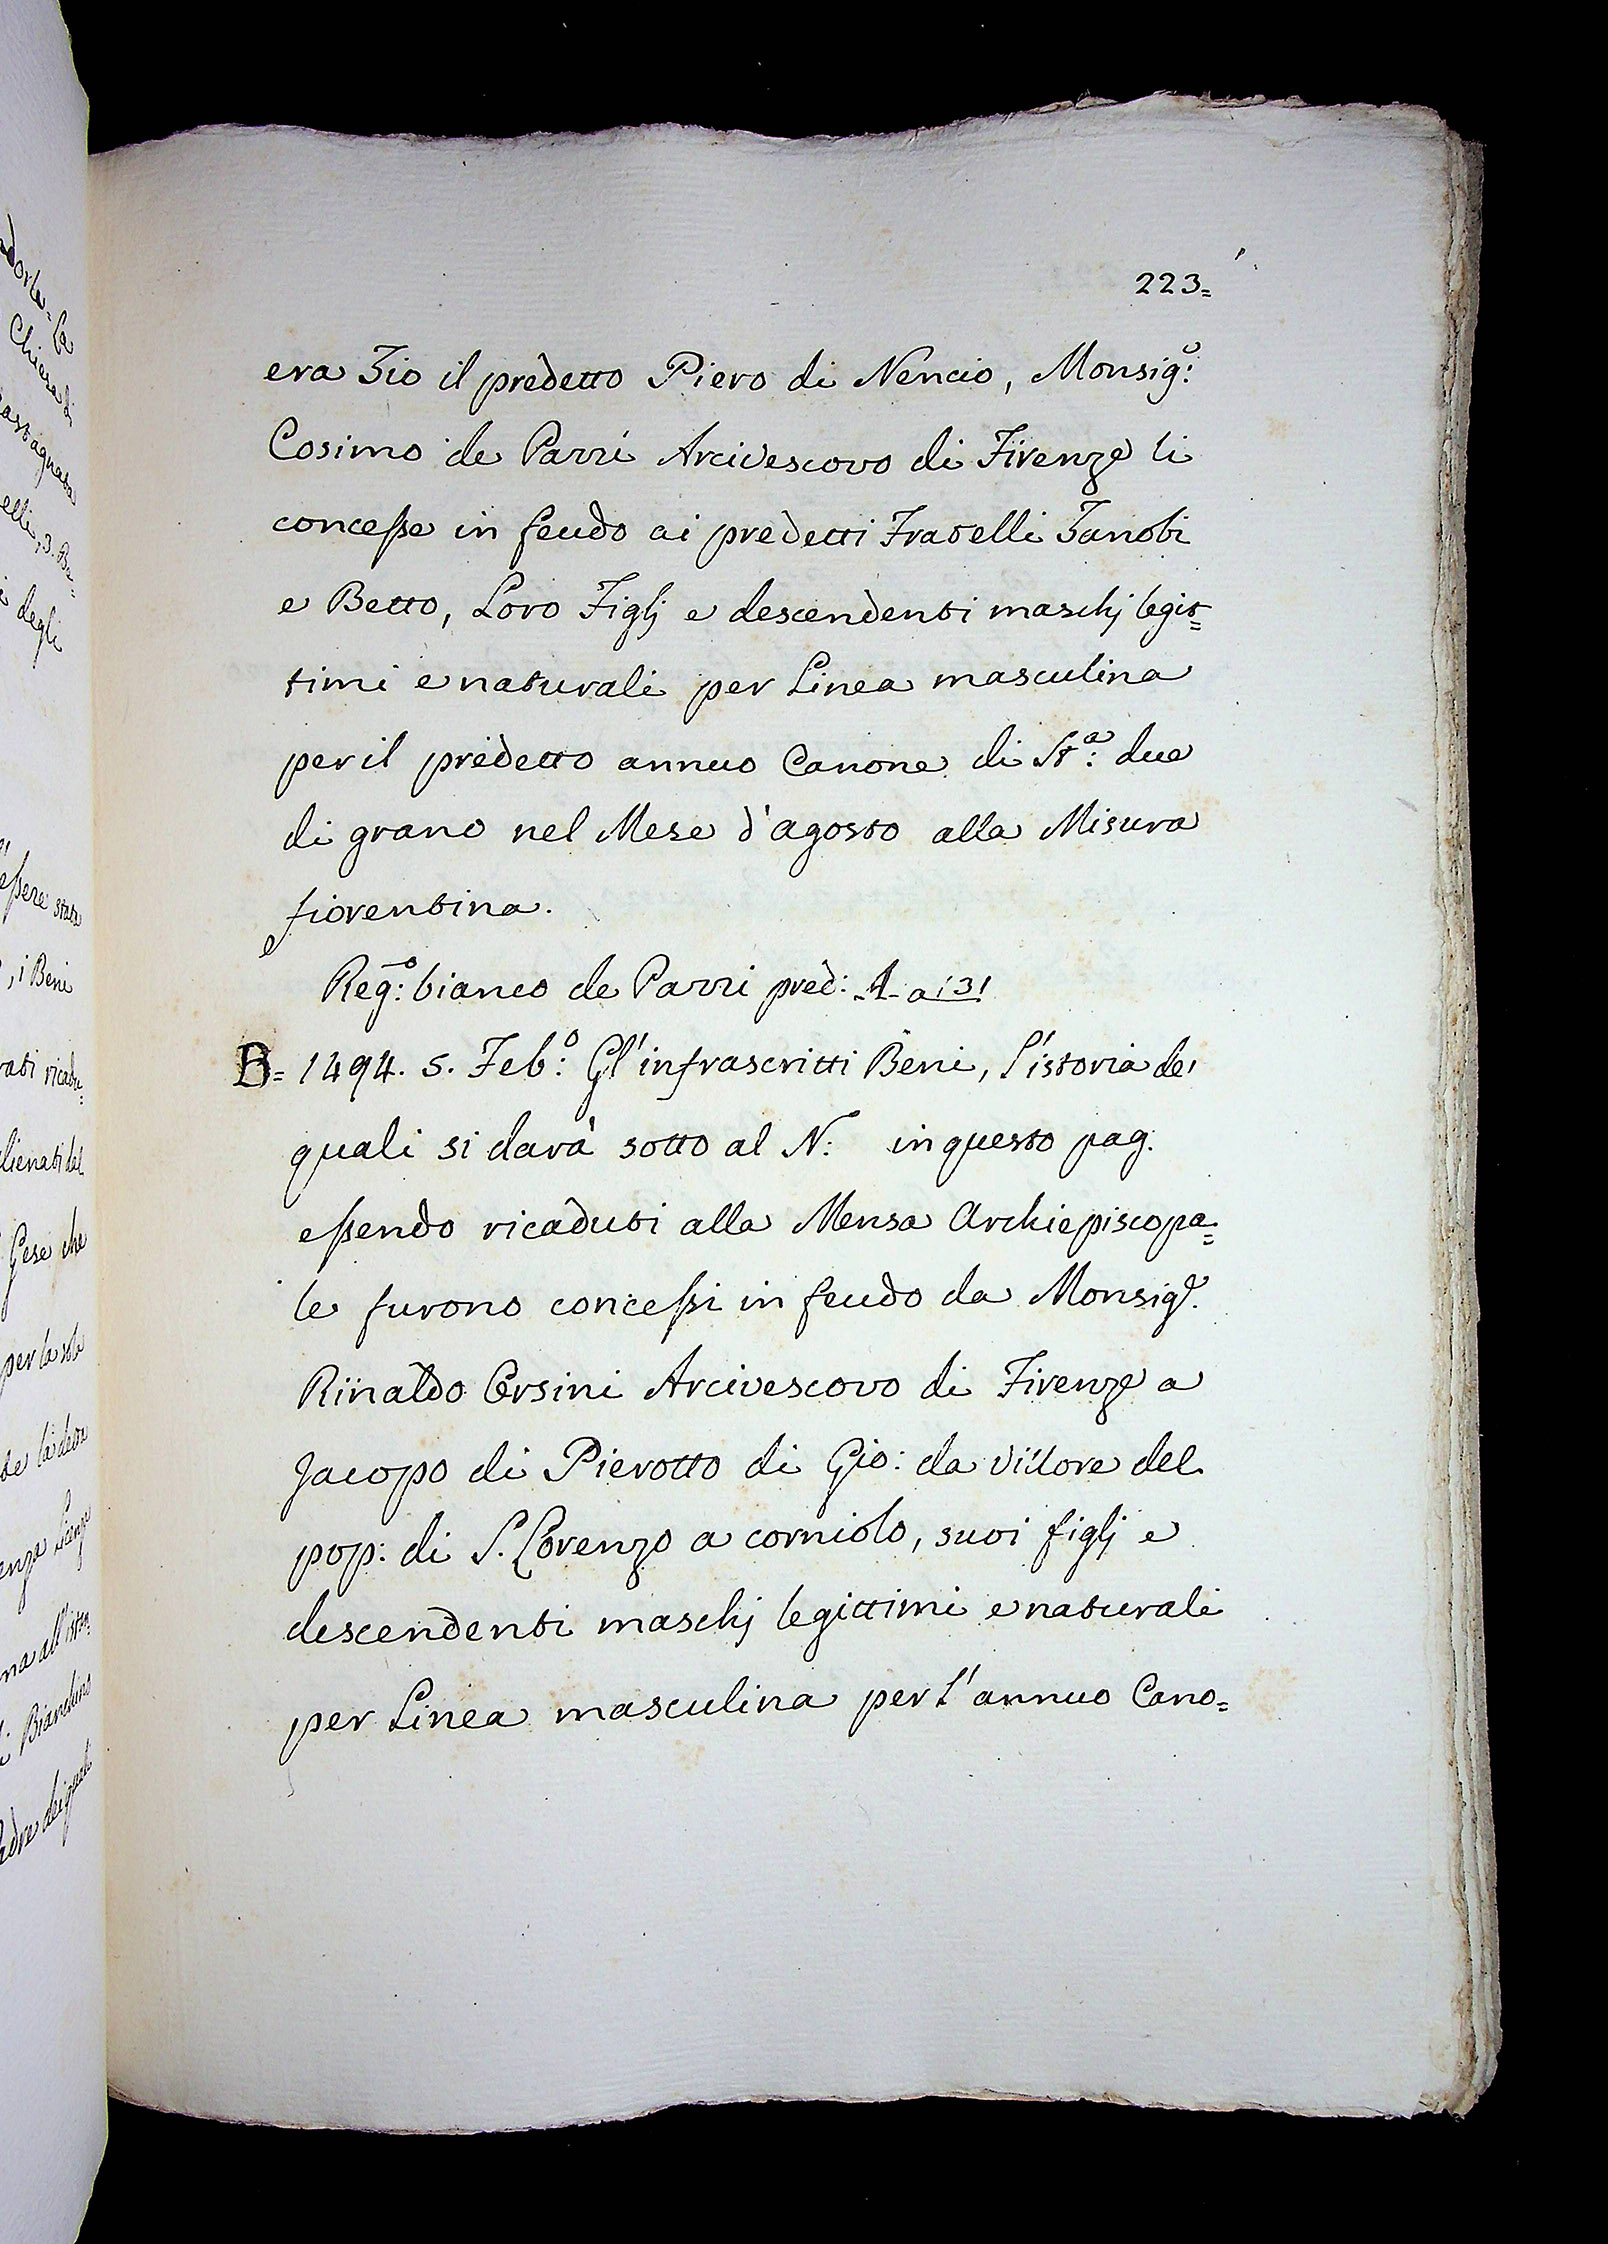 223=
era Zio il predetto Piero di Nencio, Monsig:e
Cosimo de Pazzi Arcivescovo di Firenze li
concesse in feudo ai predetti Fratelli Zanobi
e Betto, Loro Figlj e descendenti maschj legit=
timi e naturali per Linea masculina
per il predetto annuo Canone di St:a due
di grano nel Mese d'agosto alla Misura
fiorentina.
Reg:o bianco de Pazzi pred: A a 131
B= 1494. 5. Feb:o Gl'infrascritti Beni, l'istoria de'
quali si darà sotto al N: in questo pag:
essendo ricaduti alla Mensa Archiepiscopa=
le furono concessi in feudo da Monsig.e
Rinaldo Orsini Arcivescovo di Firenze a
Jacopo di Pierotto di Gio: da Villore del
pop: di S. Lorenzo a corniolo, suoi figlj e
descendenti maschj legittimi e naturali
per Linea masculina per l'annuo Cano=